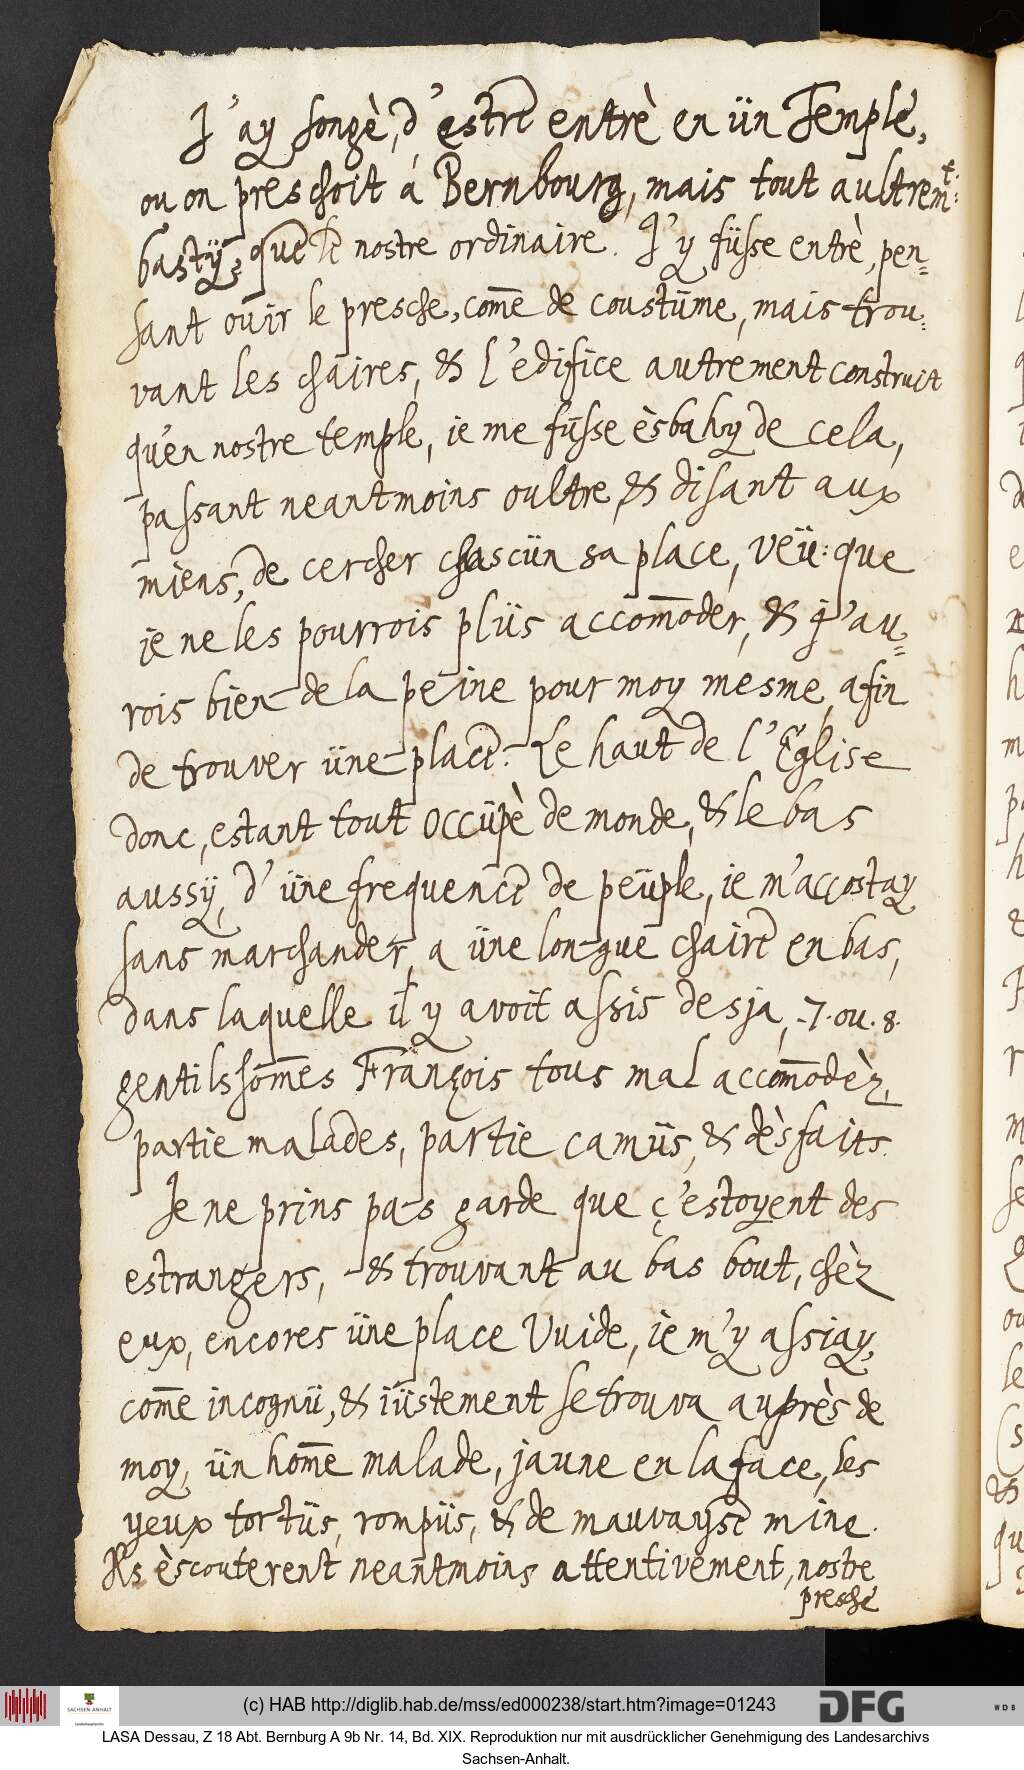 J'ay songè, d'estre entrè en ün Temple,
ou on preschoit á Bernbourg, mais tout aultrem.t:
basty, que le nostre ordinaire. J'y füsse entrè, pen=
sant ouir le presche, com̄e de coustüme, mais trou=
vant les chaires, & l'edifice autrement construit
qu'en nostre temple, je me füsse èsbahy de cela,
passant neantmoins oultre, & disant aux
miens, de cercher chascün sa place, veü: que
je ne les pourrois plüs accom̄oder, & j'au=
rois bien de la peine pour moy mesme, afin
de trouver üne place. Le haut de l'Eglise
donc, estant tout occüpè de monde, & le bas
aussÿ, d'üne frequence de peüple, je m'accostay
sans marchander, a üne longue chaire en bas,
dans laquelle il y avoit assis desja, 7. ou. 8.
gentilshom̄es François tous mal accom̄odèz,
partie malades, partie camüs, & dèsfaits.
Je ne prins pas garde que ç'estoyent des
estrangers, & trouvant au bas bout, chèz
eux, encores üne place Vuide, je m'y assiay,
com̄e incognü, & iüstement se trouva auprès de
moy, ün hom̄e malade, jaune en la face, les
yeux tortüs, rompüs, & de mauvayse mine.
Ils èscouterent neantmoins attentivement, nostre
presche
(c) HAB http://diglib.hab.de/mss/ed000238/start.htm?image=01243
SACHSEN-ANHALT
DFG
WDB
LASA Dessau, Z 18 Abt. Bernburg A 9b Nr. 14, Bd. XIX. Reproduktion nur mit ausdrücklicher Genehmigung des Landesarchivs
Sachsen-Anhalt.